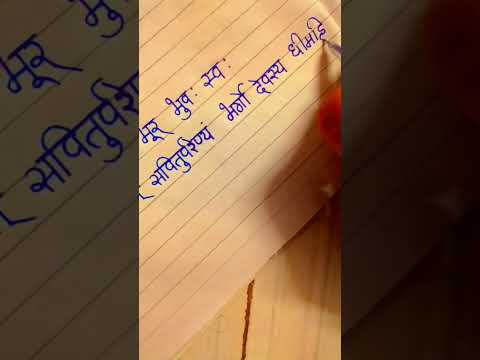 भूर् भुवः स्वः
सवितुर्वरेण्यं भर्गो देवस्य धीमहि